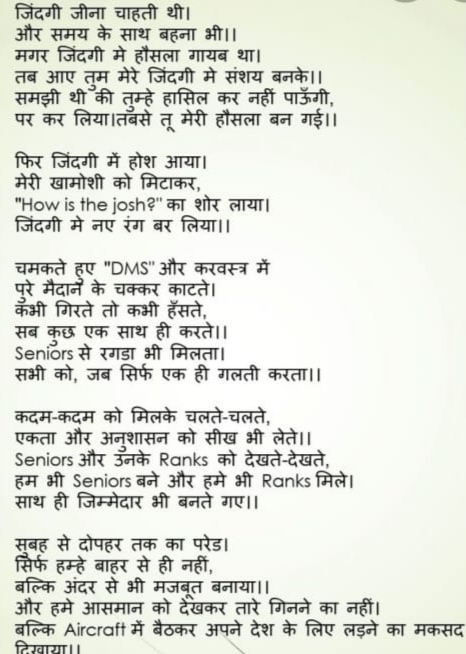 जिंदगी जीना चाहती थी।
और समय के साथ बहना भी।।
मगर जिंदगी मे हौसला गायब था।
तब आए तुम मेरे जिंदगी मे संशय बनके।।
समझी थी की तुम्हे हासिल कर नहीं पाऊँगी,
पर कर लिया।तबसे तू मेरी हौसला बन गई।।
फिर जिंदगी में होश आया।
मेरी खामोशी को मिटाकर,
"How is the josh?" का शोर लाया।
जिंदगी मे नए रंग बर लिया।।
चमकते हुए "DMS" और करवस्त्र में
पुरे मैदान के चक्कर काटते।
कभी गिरते तो कभी हँसते,
सब कुछ एक साथ ही करते।।
Seniors से रगडा भी मिलता।
सभी को, जब सिर्फ एक ही गलती करता।।
कदम-कदम को मिलके चलते-चलते,
एकता और अनुशासन को सीख भी लेते।।
Seniors और उनके Ranks को देखते-देखते,
हम भी Seniors बने और हमे भी Ranks मिले।
साथ ही जिम्मेदार भी बनते गए।।
सुबह से दोपहर तक का परेड।
सिर्फ हम्हे बाहर से ही नहीं,
बल्कि अंदर से भी मजबूत बनाया।।
और हमे आसमान को देखकर तारे गिनने का नहीं।
बल्कि Aircraft में बैठकर अपने देश के लिए लड़ने का मकसद
दिखाया।।